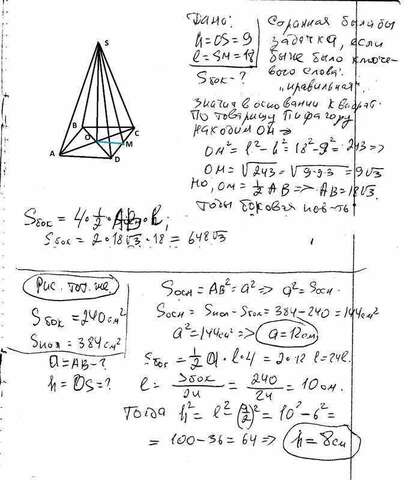 Дано:
h=OS=9
l=SM=18
Sбок-?
Соранная была бы
задачка, если
бы не было ключе-
вого слова:
"правильная".
Значит в основании квадрат.
По товарищу Пифагору
находим OM ⇒
OM²=l²-h²=18²-9²=243 ⇒
OM=√243=√9·9·3=9√3
Но, OM=½AB ⇒ AB=18√3.
Тогда боковая пов-ть
S
B
C
O
M
A
D
Sбок=4·½·AB·l;
Sбок=2·18√3·18=648√3
Рис. тот же
Sбок=240см²
Sпол=384см²
a=AB-?
h=OS=?
Sосн=AB²=a² ⇒ a²=Sосн.
Sосн=Sпол-Sбок=384-240=144см²
a²=144см² ⇒ a=12см
Sбок=½a·l·4=2·12l=24l.
l=Sбок/24=240/24=10см.
Тогда h²=l²-(a/2)²=10²-6²=
=100-36=64 ⇒ h=8см